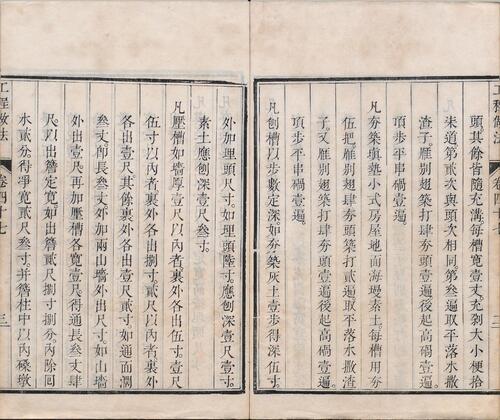 頭其餘皆隨充溝每槽寬壹丈充剁大小梗拾
柒道第貳次與頭次相同第叁遍取平落水撒
渣子雁別翅築打肆夯頭壹遍後起高硪壹遍
頂步平串硪壹遍
凡夯築填墊小式房屋地面海墁素土每槽用夯
伍把雁別翅肆夯頭築打貳遍取平落水撒渣
子又雁別翅築打肆夯頭壹遍後起高硪壹遍
頂步平串硪壹遍
凡刨槽以步數定深如夯築灰土壹步得深伍寸
外加埋頭尺寸如埋頭陸寸應刨深壹尺壹寸
素土應刨深壹尺叁寸
凡壓槽如墻厚壹尺以內者裏外各出伍寸壹尺
伍寸以內者裏外各出捌寸貳尺以內者裏外
各出壹尺其餘裏外各出壹尺貳寸如通面濶
叁丈卽長叁丈外加兩山墻外出尺寸如山墻
外出壹尺再加壓槽各寬壹尺得通長叁丈肆
尺以出簷定寬如出簷貳尺肆寸捌分內除回
水貳分得淨寬貳尺叁寸并簷柱中以內磉墩
工程做法
卷四十七
三
工程做法